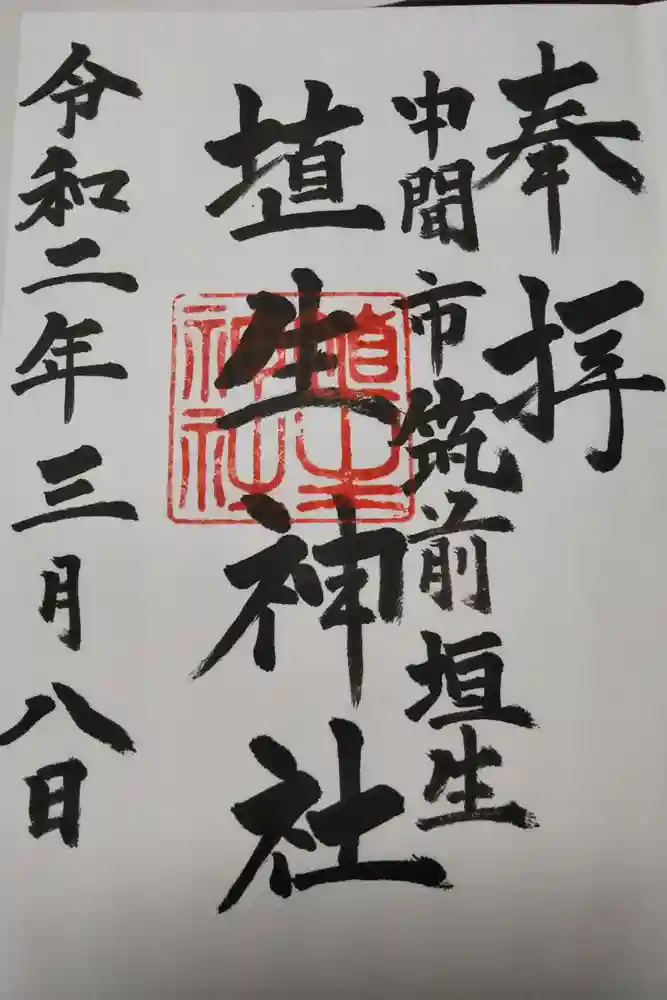 奉拝
中間市筑前垣生
埴生神社
埴生神社
令和二年三月八日